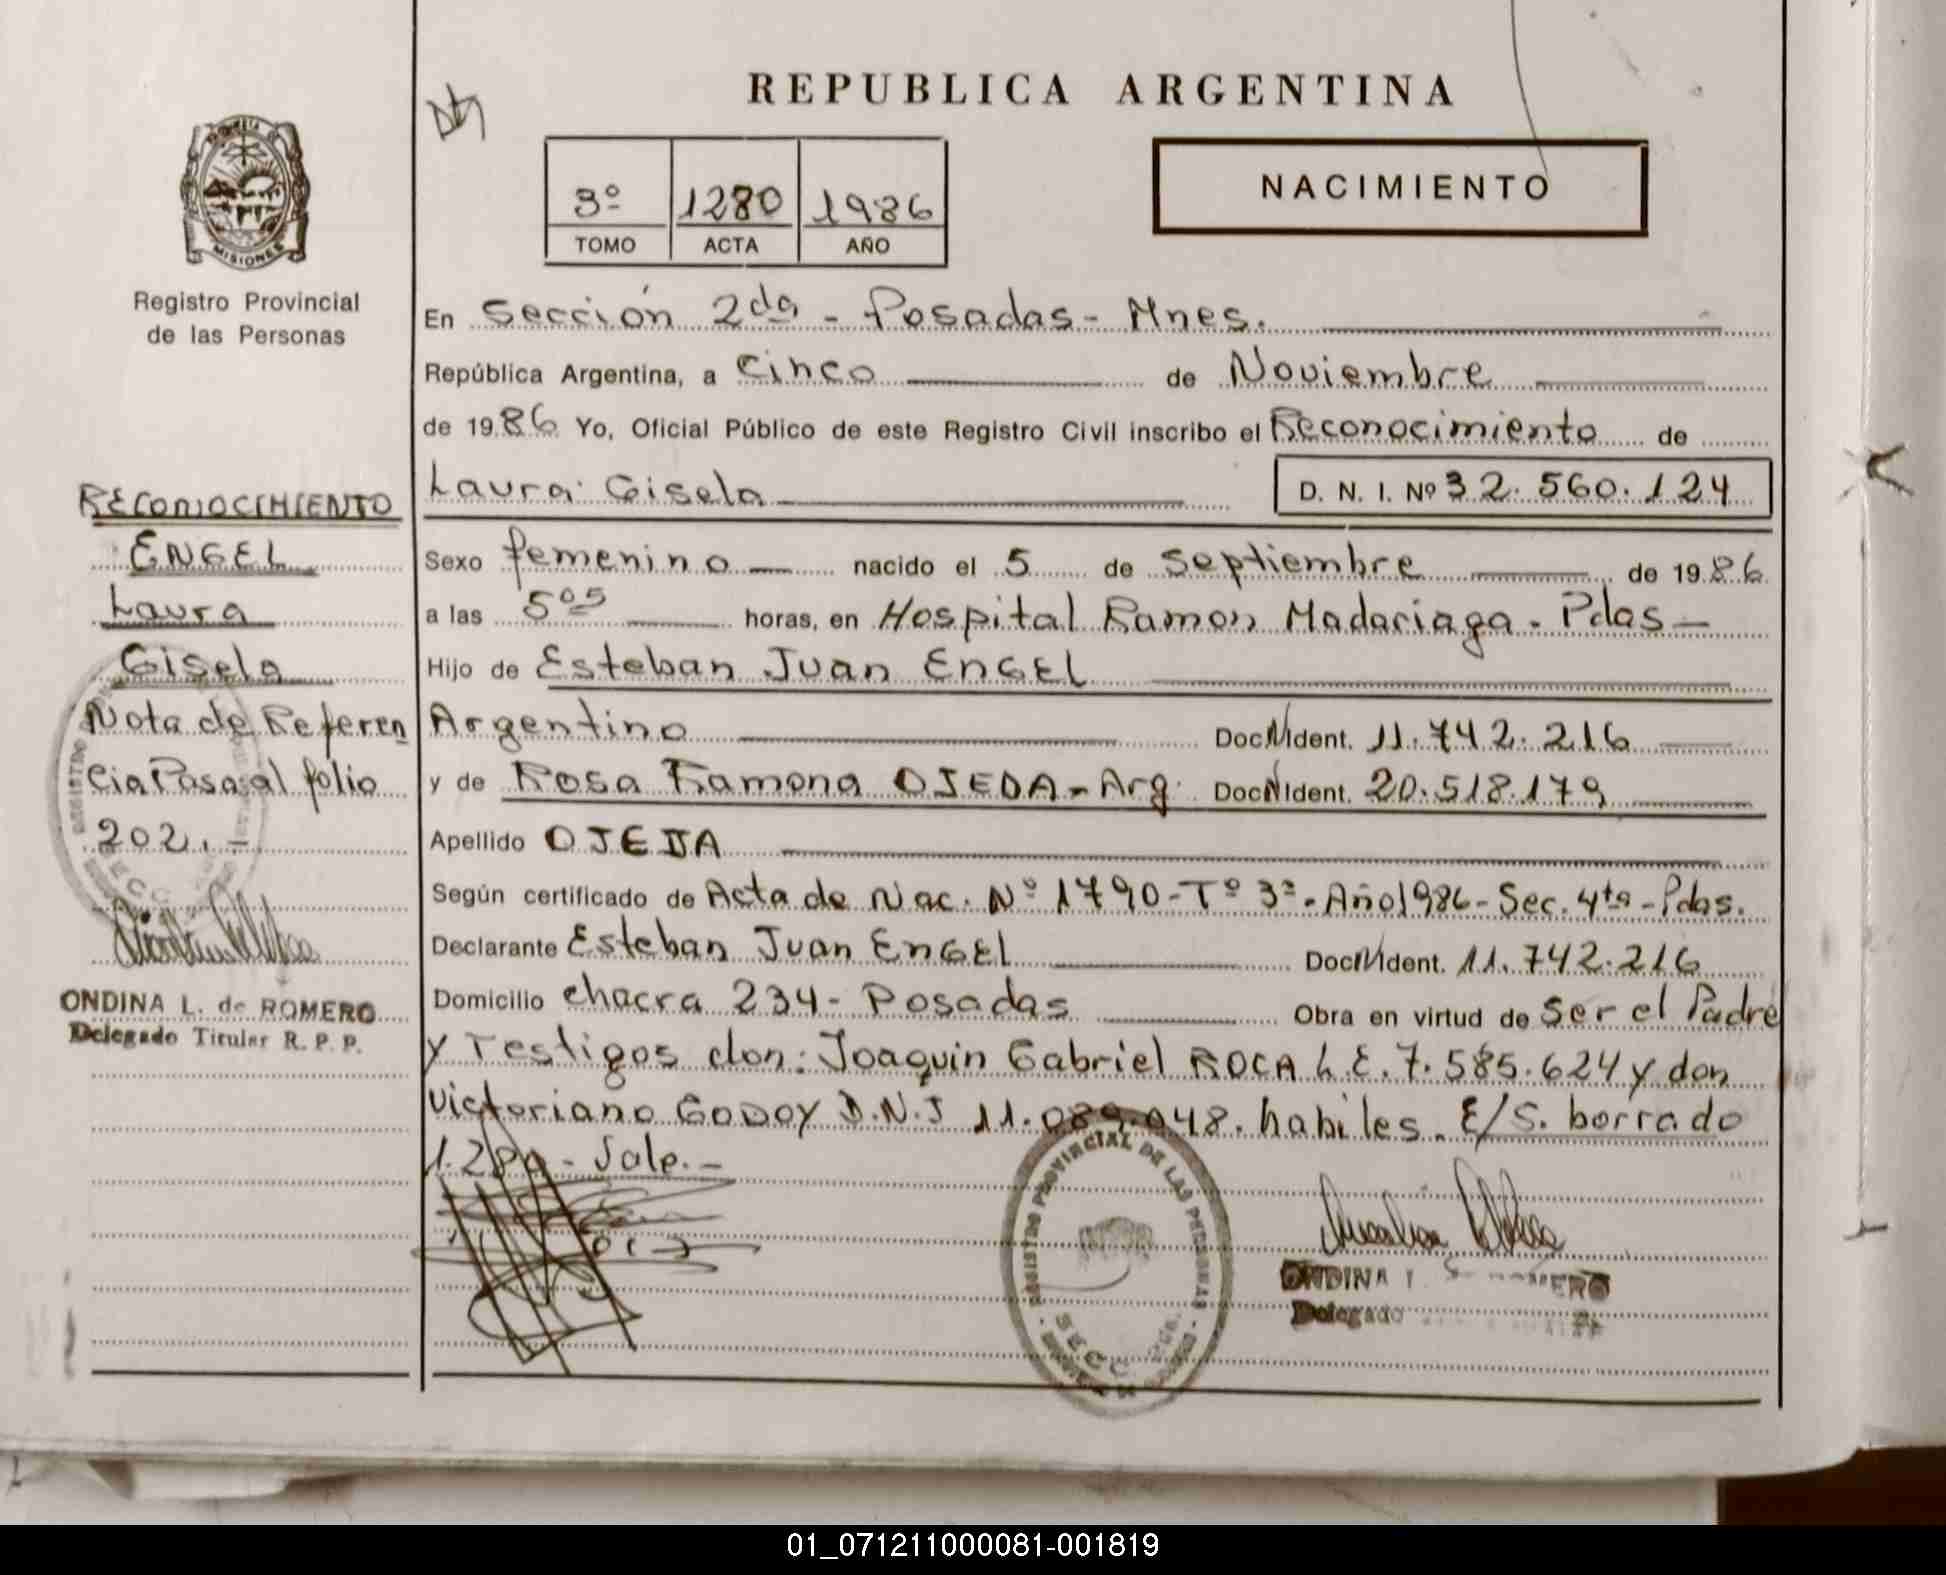 REPUBLICA ARGENTINA
NACIMIENTO
3º 1280 1986
TOMO ACTA AÑO
MISIONES
Registro Provincial
de las Personas
RECONOCIMIENTO
ENGEL
Laura
Gisela
Nota de Referen
cia Pasa al folio
202.-
ONDINA L. de ROMERO
Delegado Titular R. P. P.
En Sección 2da - Posadas - Mnes.
República Argentina, a Cinco de Noviembre
de 1986 Yo, Oficial Público de este Registro Civil inscribo el Reconocimiento de
Laura Gisela D. N. I. Nº 32.560.124
Sexo femenino nacido el 5 de Septiembre de 1986
a las 5 05 horas, en Hospital Ramon Madariaga - Pdas -
Hijo de Esteban Juan ENGEL
Argentino Doc. Ident. 11.742.216
y de Rosa Ramona OJEDA - Arg. Doc. Ident. 20.518.179
Apellido OJEDA
Según certificado de Acta de Nac. Nº 1790 - Tº 3º - Año 1986 - Sec. 4ta - Pdas.
Declarante Esteban Juan ENGEL Doc. Ident. 11.742.216
Domicilio chacra 234 - Posadas Obra en virtud de Ser el Padre
y Testigos don: Joaquin Gabriel ROCA L.E. 7.585.624 y don
Victoriano GODOY D.N.I 11.089.048. habiles. E/S. borrado
1.280 - Vale. -
REGISTRO PROVINCIAL DE LAS PERSONAS
SECC. 2da.
ONDINA ROMERO
Delegado
01_071211000081-001819